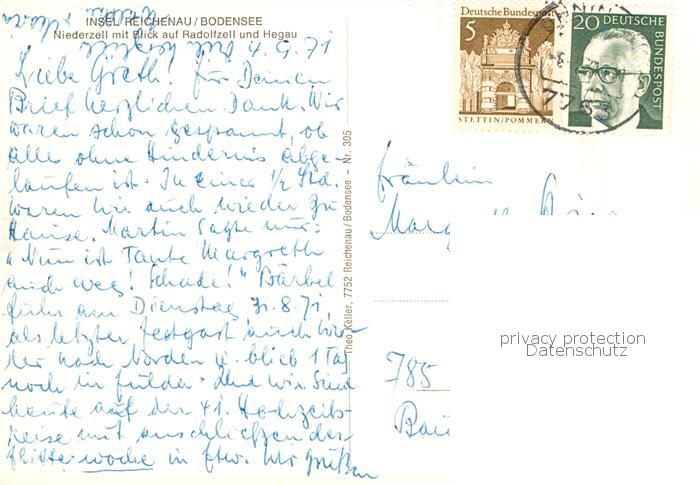 INSEL REICHENAU / BODENSEE
Niederzell mit Blick auf Radolfzell und Hegau
4. 9. 71
Liebe Greth! Für Deinen
Brief herzlichen Dank. Wir
waren schon gespannt, ob
alles ohne Hindernis abge-
laufen ist. In einer 1/2 Std.
waren wir auch wieder zu
Hause. Martin sagte nur:
"Nun ist Tante Margreth
auch weg! Schade!" Bärbel
fuhr am Dienstag, 31.8.71,
als letzter Festgast auch wie-
der nach Norden u. blieb 1 Tag
noch in Fulda. Und wir sind
heute auf der 41. Hochzeits-
reise mit anschließender
Flitterwoche in . Wir grüßen
Theo Keller, 7752 Reichenau/Bodensee – Nr. 305
Deutsche Bundespost
5
STETTIN/POMMERN
20
DEUTSCHE
BUNDESPOST
7753
Fräulein
785
privacy protection
Datenschutz